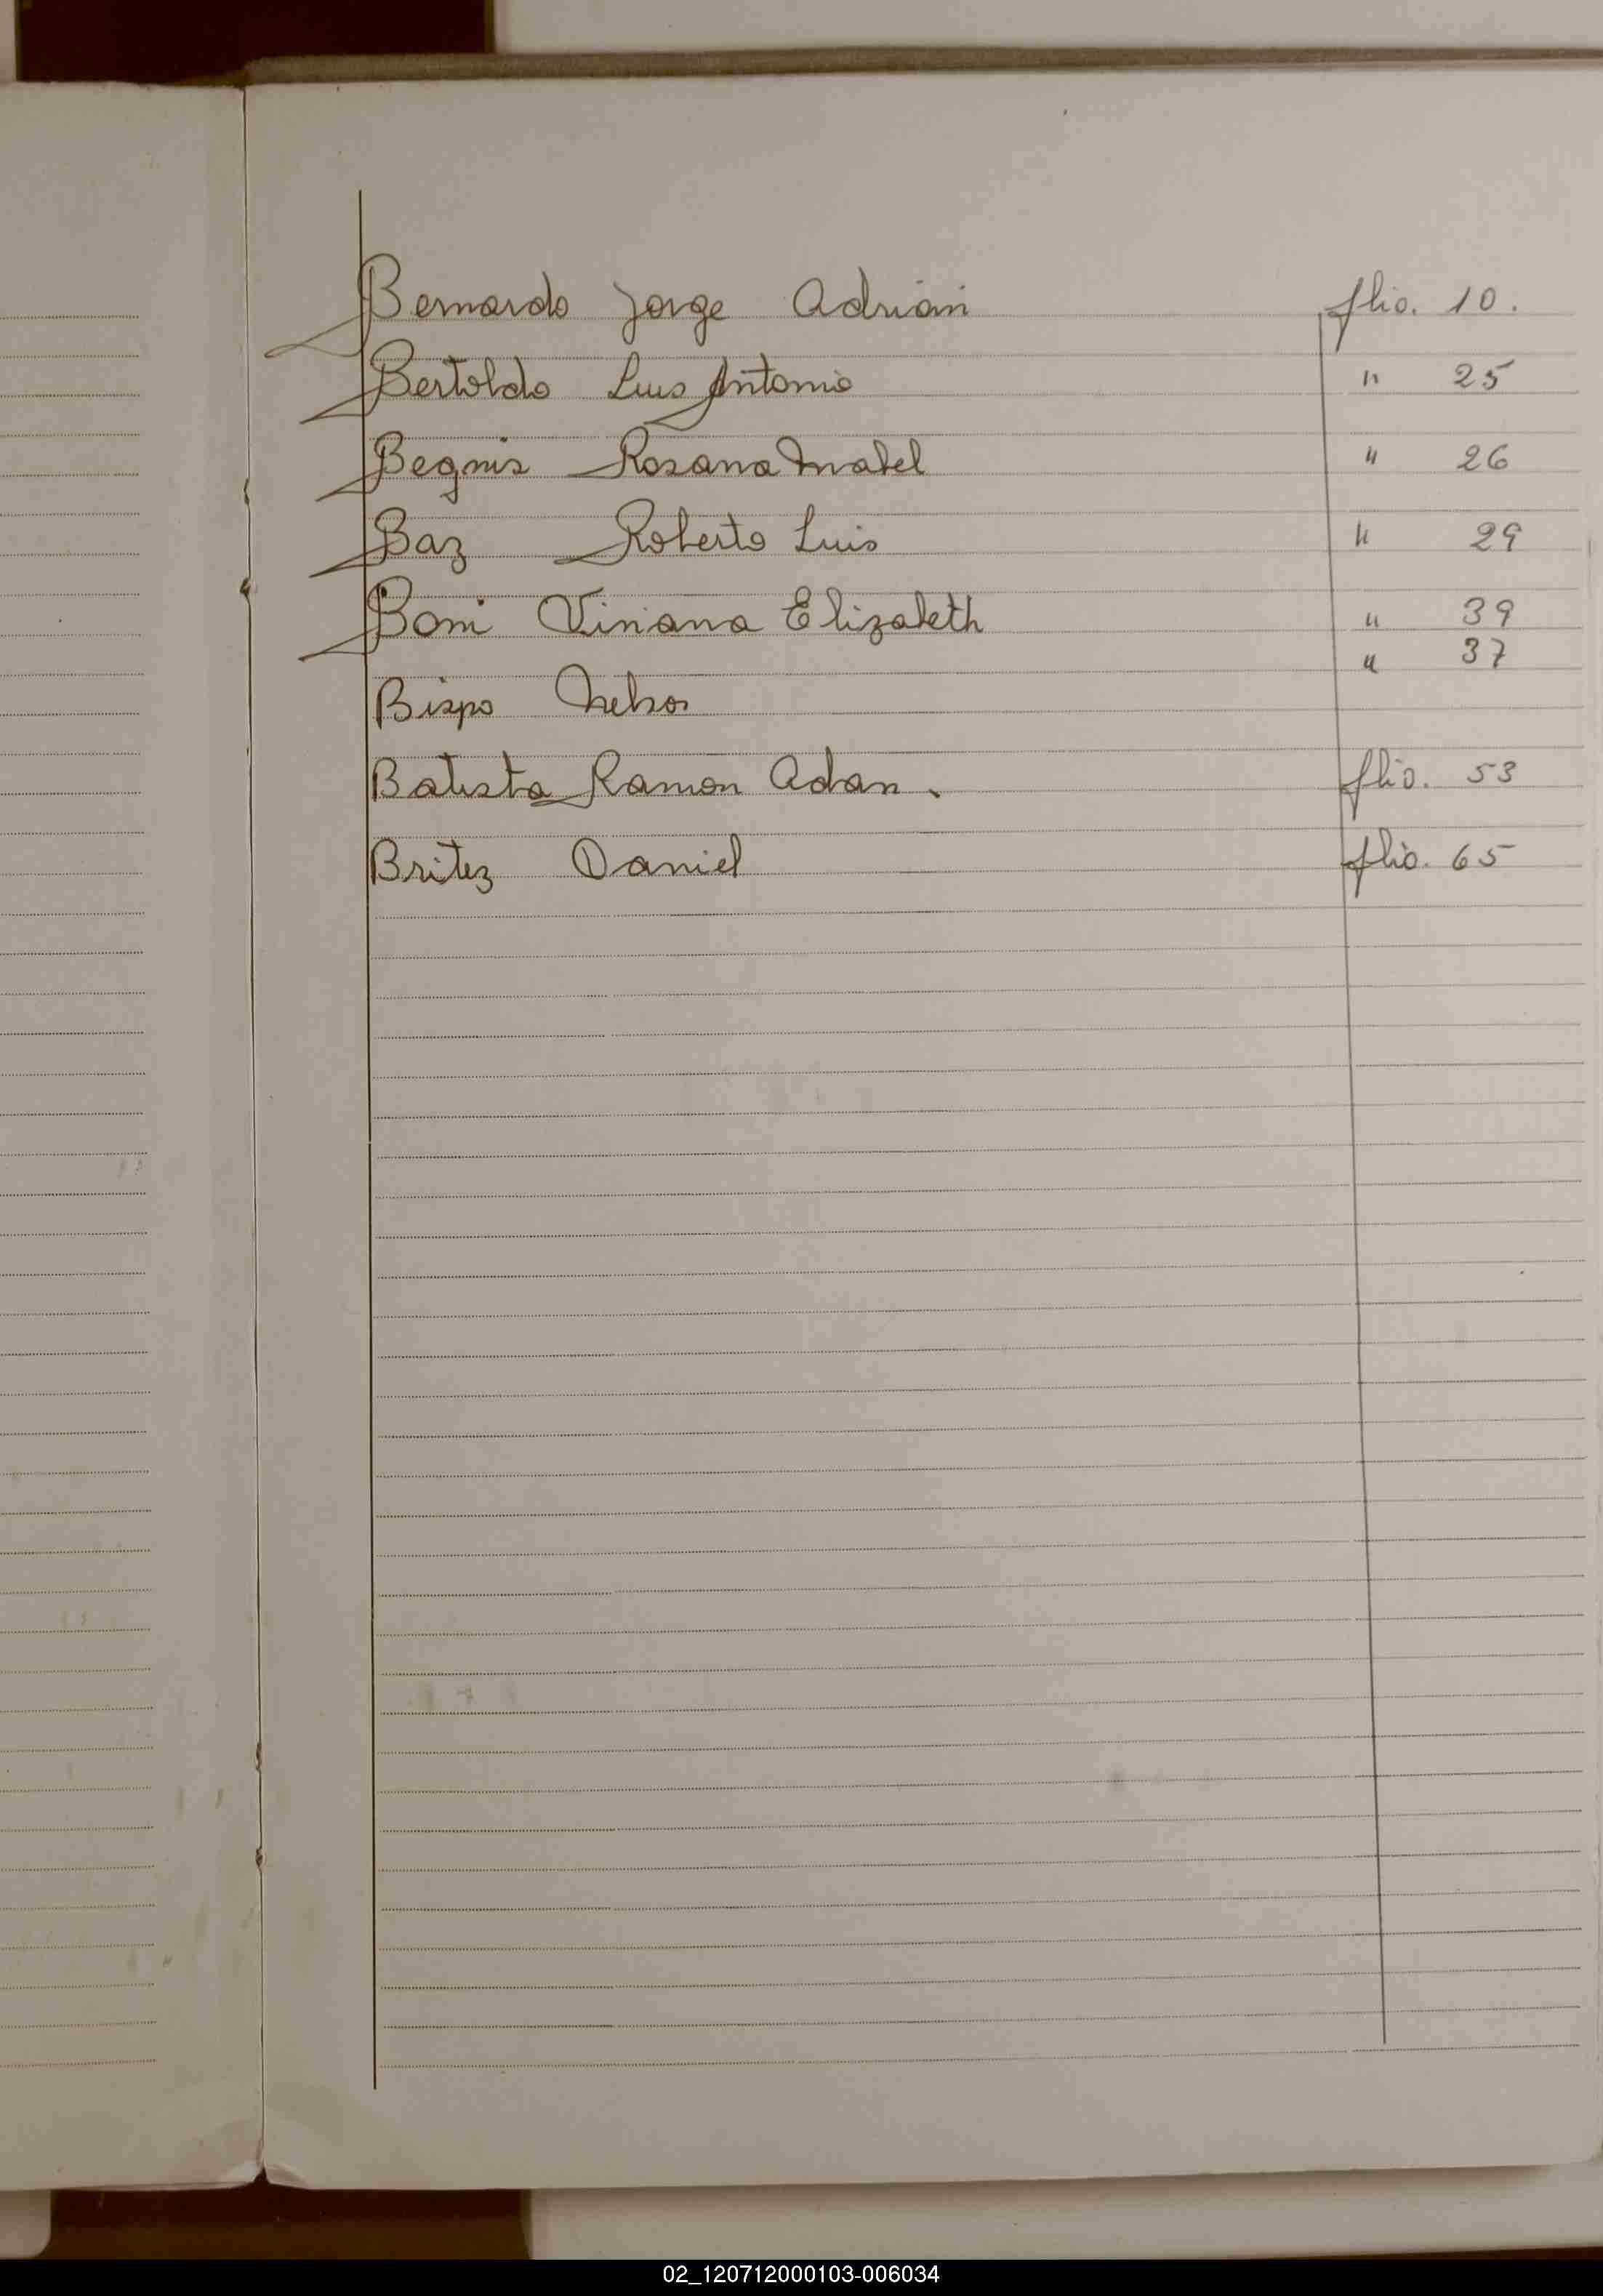 Bernardo Jorge Adrián flio. 10.
Bertoldo Luis Antonio " 25
Begnis Rosana Mabel " 26
Baz Roberto Luis " 29
Boni Viviana Elizabeth " 39
" 37
Bispo Nelson
Batista Ramón Adan. flio. 53
Britez Daniel flio. 65
02_120712000103-006034